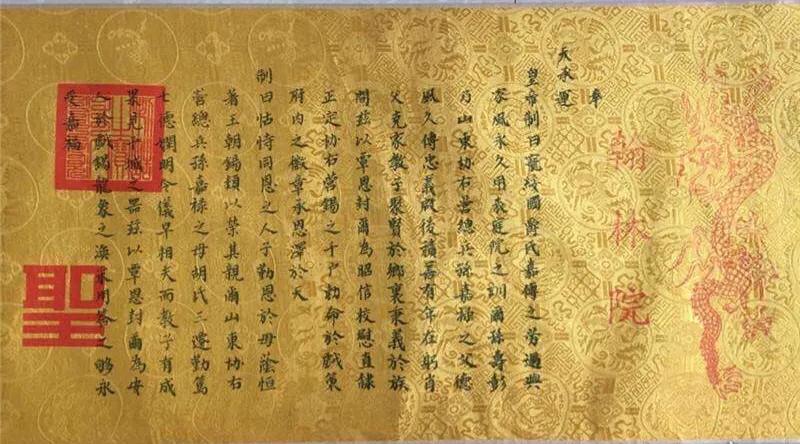 翰林院
奉
天承運
皇帝制曰寵綏國爵氏嘉傅之勞遡興
家風永久用教庭院之訓爾孫壽彭
乃山東協右營總兵孫嘉祿之父德
風久傳忠義啟後積善有年在躬肯
父克家教子聚賢於鄉裏秉義於族
閭茲以覃恩封爾為昭信校慰直隸
正定協右營錫之千戶勅命於戲策
府內之徽章承恩澤於天
制曰怙恃同恩之人子勤恩於毋蔭恒
著王朝錫類以榮其親爾山東協右
營總兵孫嘉祿之母胡氏三遷勤篤
七德嫻明令儀早相夫而教子有成
果見干城之器茲以覃恩封爾為安
人於戲錫龍象之渙采用答之夠永
受嘉福
聖